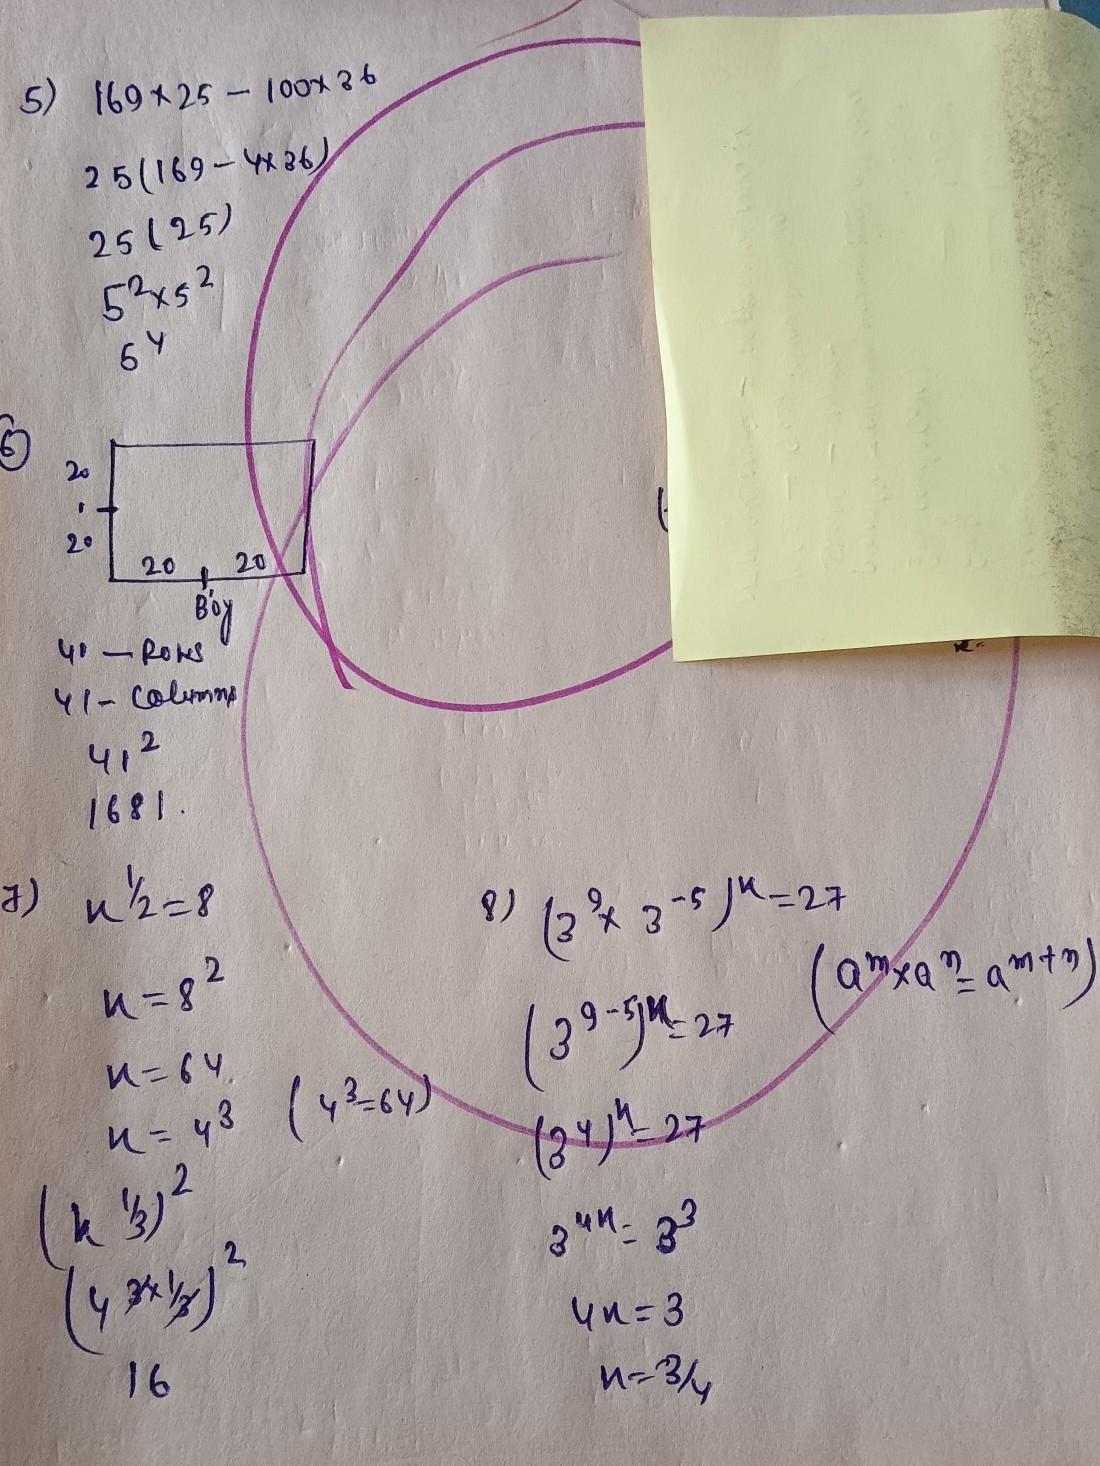 5) 169×25 – 100×36
25(169 – 4×36)
25(25)
5²×5²
5⁴
6
20
1
20
20 20
Boy
41 – Rows
41 – Columns
41²
1681.
7) x^1/2 = 8
x = 8²
x = 64
x = 4³ (4³=64)
(x^1/3)²
(4^3×1/3)²
16
8) (3⁹ × 3⁻⁵)ˣ = 27
(3⁹⁻⁵)ˣ = 27 (aᵐ×aⁿ = aᵐ⁺ⁿ)
(3⁴)ˣ = 27
3⁴ˣ = 3³
4x = 3
x = 3/4